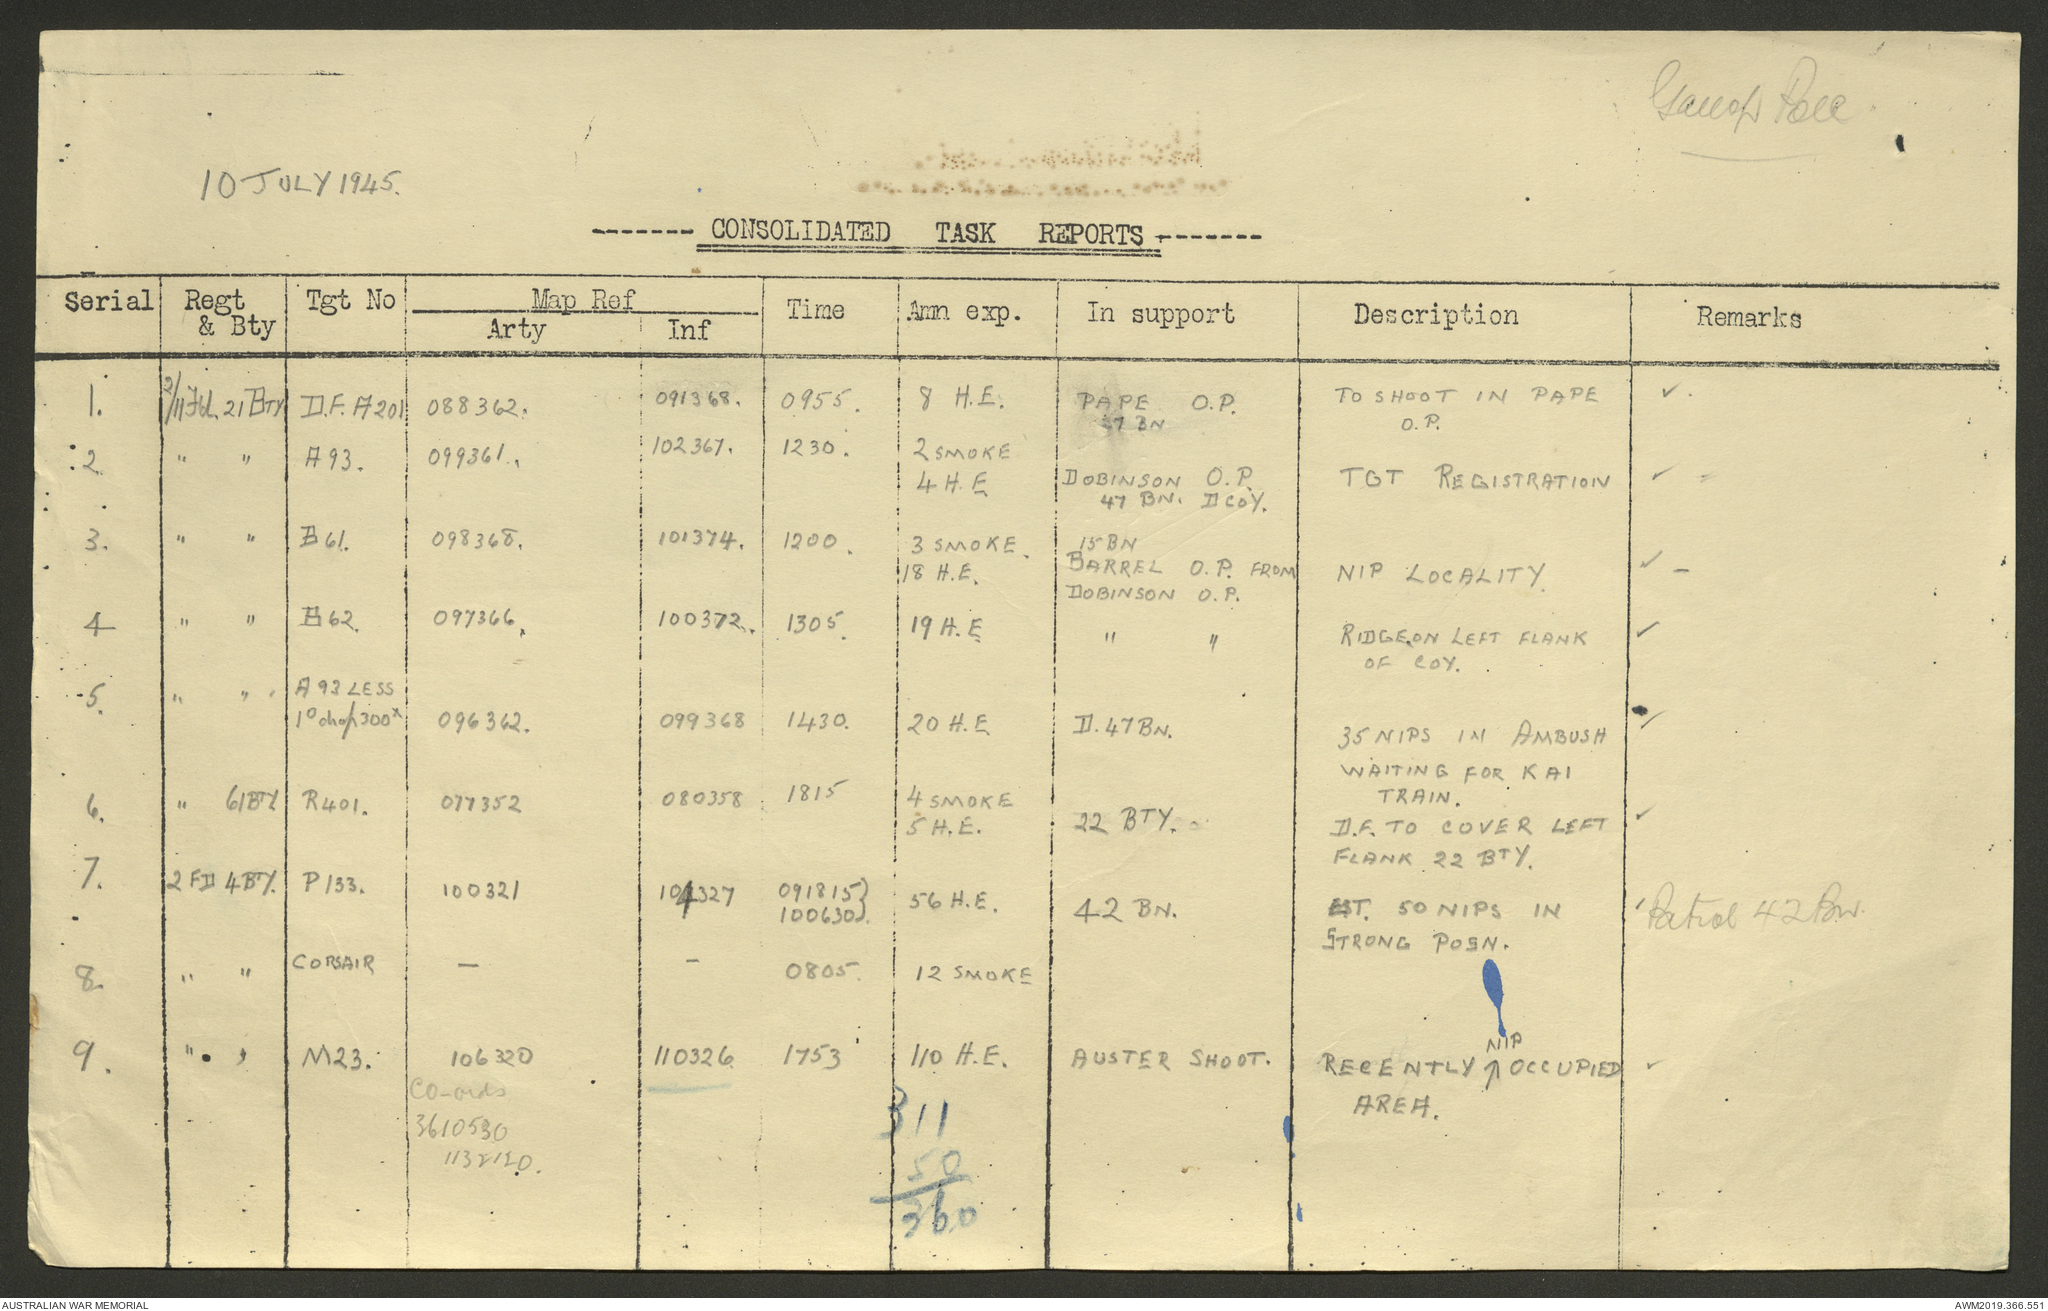 10 JULY 1945.
------- CONSOLIDATED TASK REPORTS -------
Serial Regt & Bty Tgt No Map Ref Arty Inf Time Amn exp. In support Description Remarks
1. 2/11 Fd. 21 BTY D.F. A201 088362. 091368. 0955. 8 H.E. PAPE O.P. TO SHOOT IN PAPE ✓.
47 BN O.P.
2 " " A93. 099361. 102367. 1230. 2 SMOKE
4 H.E DOBINSON O.P. TGT REGISTRATION ✓
47 BN. D COY.
3. " " B61. 098368. 101374. 1200. 3 SMOKE. 15 BN
18 H.E. BARREL O.P. FROM NIP LOCALITY. ✓ –
DOBINSON O.P.
4 " " B62. 097366. 100372. 1305. 19 H.E " " RIDGE ON LEFT FLANK ✓
OF COY.
5. " " A93 LESS
1° drop 300x 096362. 099368 1430. 20 H.E D. 47 BN. 35 NIPS IN AMBUSH ✓
WAITING FOR KAI
TRAIN.
6. " 61 BTY R401. 077352 080358 1815 4 SMOKE
5 H.E. 22 BTY. D.F. TO COVER LEFT ✓
FLANK 22 BTY.
7. 2 FD 4 BTY. P133. 100321 104327 091815}
100630}. 56 H.E. 42 BN. EST. 50 NIPS IN ✓ Patrol 42 Bn.
STRONG POSN.
8. " " CORSAIR – – 0805. 12 SMOKE
9. " " M23. 106320 110326 1753 110 H.E. AUSTER SHOOT. RECENTLY NIP OCCUPIED ✓
AREA.
Co-ords
3610530
1132120.
311
50
360
AUSTRALIAN WAR MEMORIAL
AWM2019.366.551